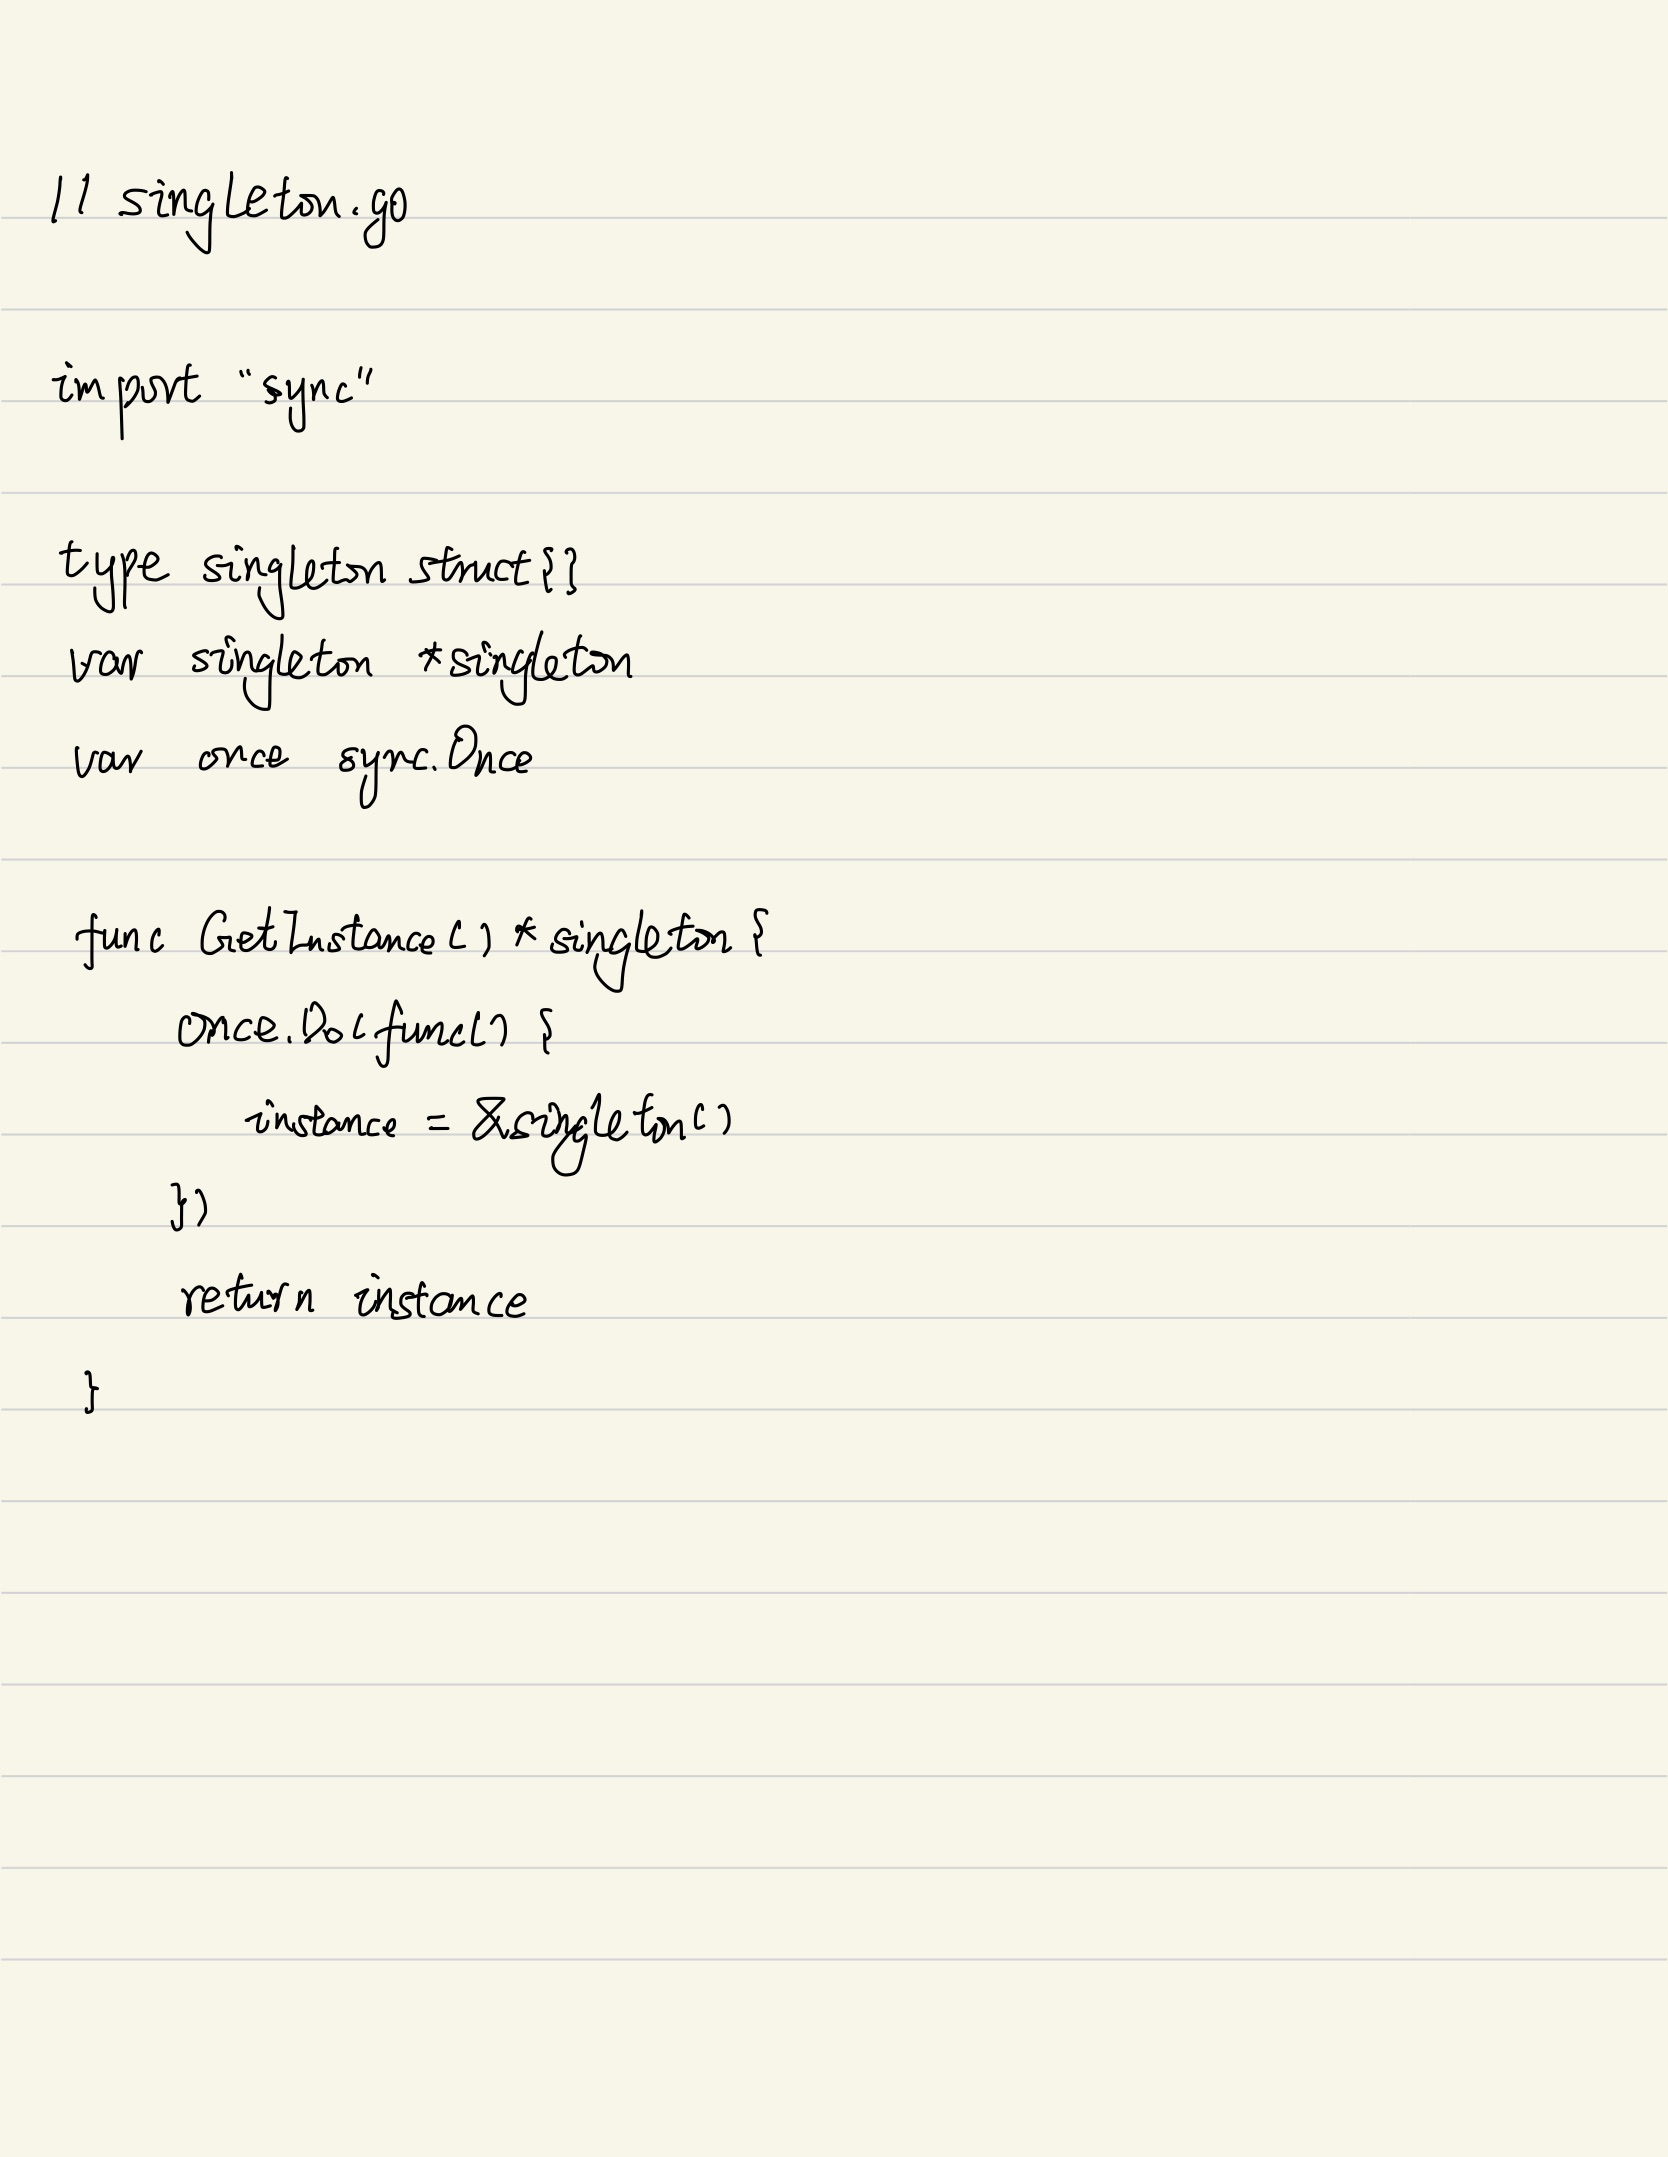 // singleton.go
import "sync"
type singleton struct{}
var singleton *singleton
var once sync.Once
func GetInstance() *singleton {
once.Do(func() {
instance = &singleton()
})
return instance
}